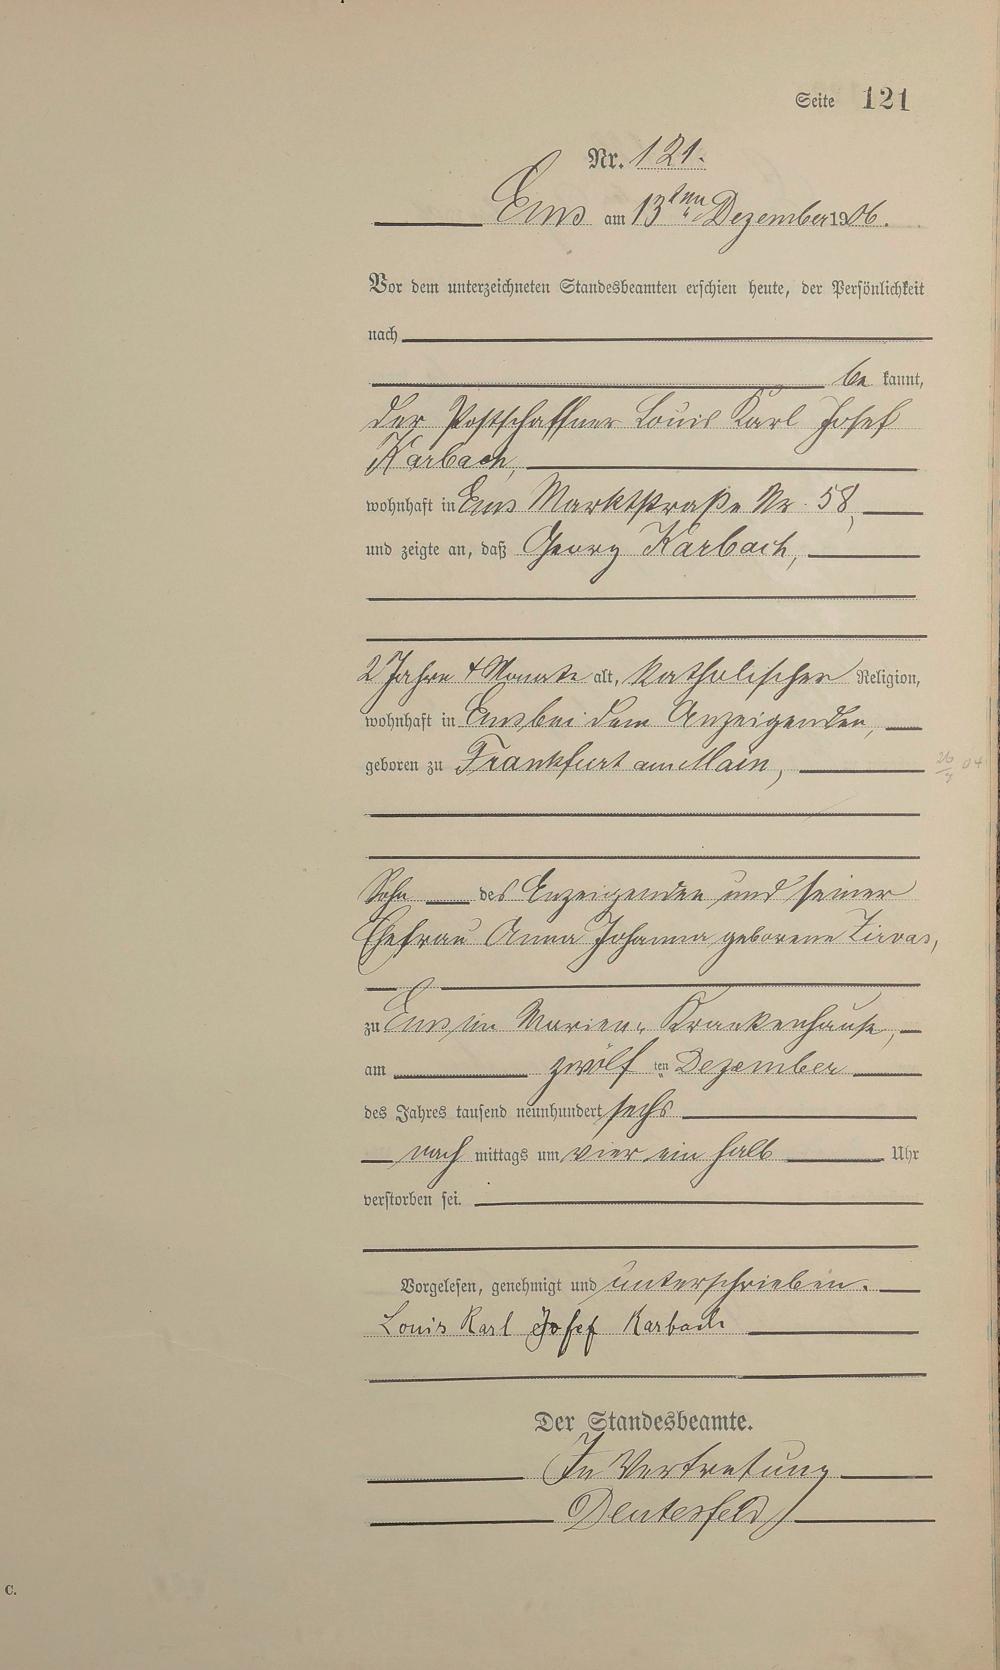 Seite 121
Nr. 121.
Ems am 13ten Dezember 1906.
Vor dem unterzeichneten Standesbeamten erschien heute, der Persönlichkeit
nach
be kannt,
der Postschaffner Louis Karl Josef
Karbach,
wohnhaft in Ems Marktstraße Nr. 58,
und zeigte an, daß Georg Karbach,
2 Jahre 4 Monate alt, katholischer Religion,
wohnhaft in Ems bei dem Anzeigenden,
geboren zu Frankfurt am Main,
26/7 04
Sohn des Anzeigenden und seiner
Ehefrau Anna Johanna geborene Zirvas,
zu Ems im Marien-Krankenhause,
am zwölf ten Dezember
des Jahres tausend neunhundert sechs
nach mittags um vier ein halb Uhr
verstorben sei.
Vorgelesen, genehmigt und unterschrieben.
Louis Karl Josef Karbach
Der Standesbeamte.
In Vertretung
C.